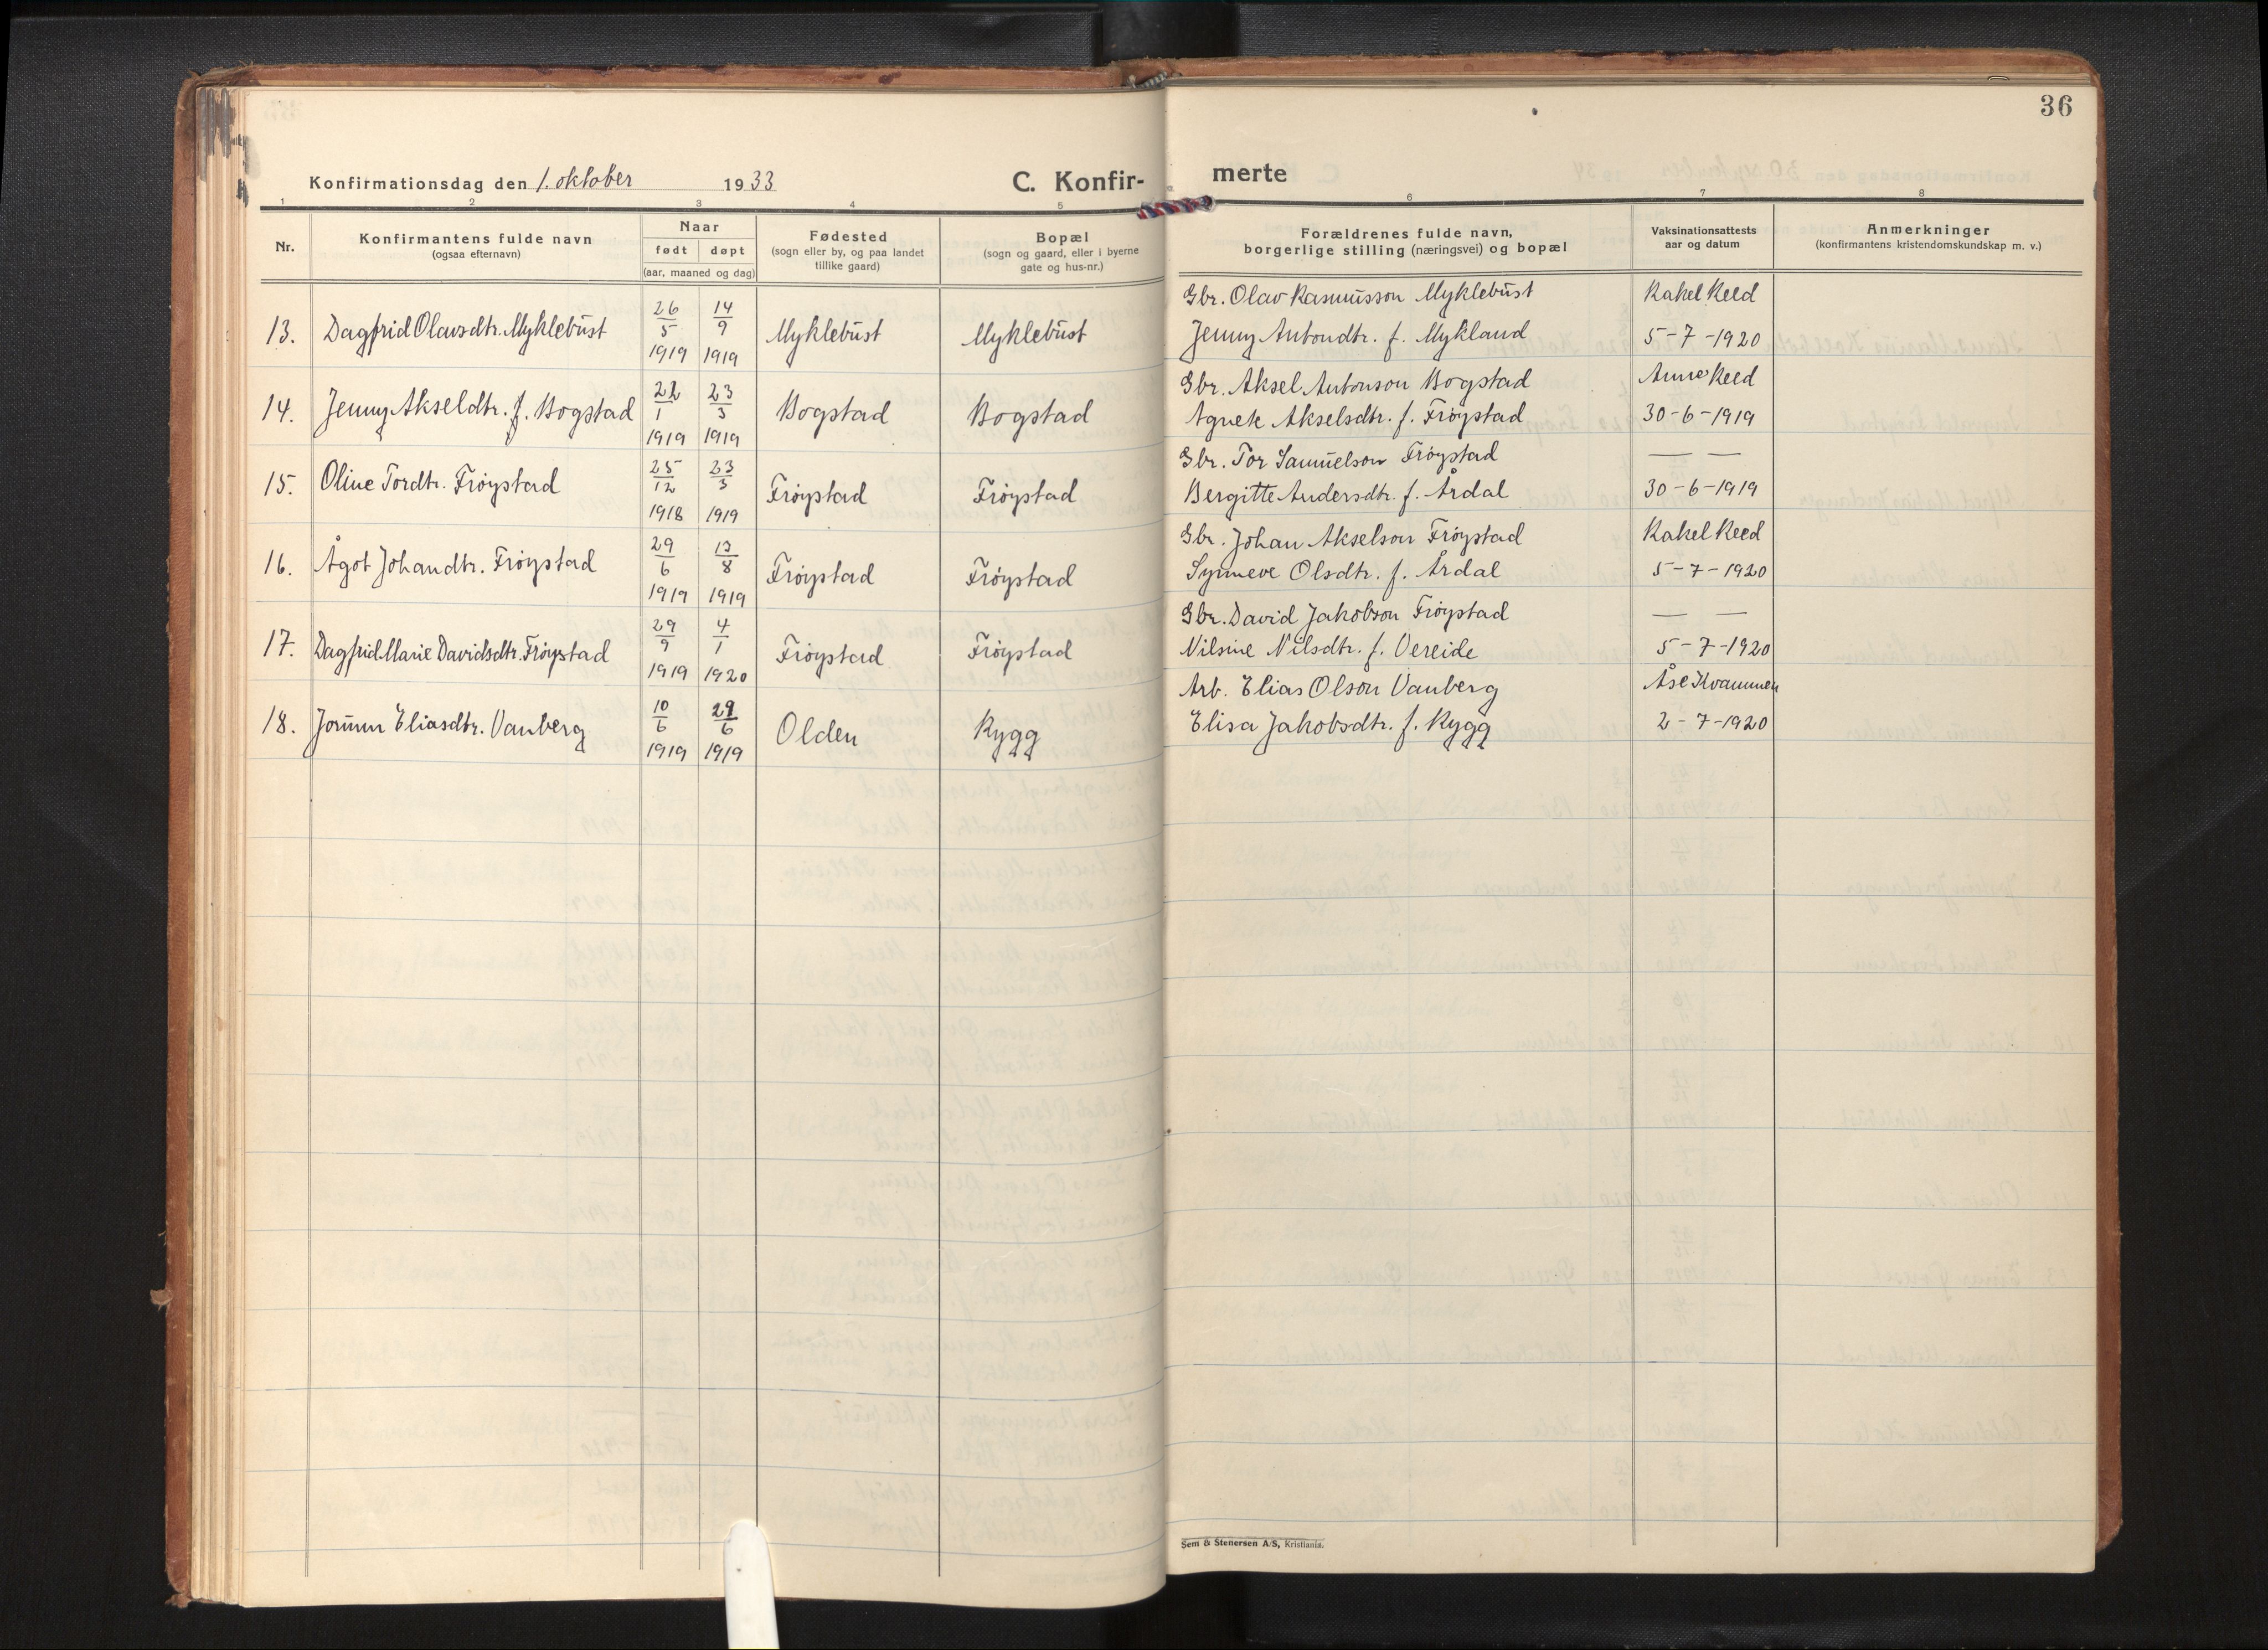 36
Konfirmationsdag den 1. oktober 1933 C. Konfirmerte
1 2 3 4 5 6 7 8
Nr.
Konfirmantens fulde navn
(ogsaa efternavn)
Naar
født døpt
(aar, maaned og dag)
Fødested
(sogn eller by, og paa landet
tillike gaard)
Bopæl
(sogn og gaard, eller i byerne
gate og hus-nr.)
Forældrenes fulde navn,
borgerlige stilling (næringsvei) og bopæl
Vaksinationsattests
aar og datum
Anmerkninger
(konfirmantens kristendomskundskap m. v.)
13. Dagfrid Olavsdtr. Myklebust 26/5 1919 14/9 1919 Myklebust Myklebust
Gbr. Olav Rasmusson Myklebust Rakel Reed
Jenny Antondtr. f. Mykland 5-7-1920
14. Jenny Akseldtr. f. Bogstad 22/1 1919 23/3 1919 Bogstad Bogstad
Gbr. Aksel Antonson Bogstad Anne Reed
Agnete Akselsdtr. f. Frøystad 30-6-1919
15. Oline Tordtr. Frøystad 25/12 1918 23/3 1919 Frøystad Frøystad
Gbr. Tor Samuelson Frøystad — —
Bergitte Andersdtr. f. Årdal 30-6-1919
16. Ågot Johandtr. Frøystad 29/6 1919 13/8 1919 Frøystad Frøystad
Gbr. Johan Akselson Frøystad Rakel Reed
Synneve Olsdtr. f. Årdal 5-7-1920
17. Dagfrid Marie Davidsdtr. Frøystad 29/9 1919 4/1 1920 Frøystad Frøystad
Gbr. David Jakobson Frøystad — —
Nilsine Nilsdtr. f. Vereide 5-7-1920
18. Jorunn Eliasdtr. Vanberg 10/6 1919 29/6 1919 Olden Rygg
Arb. Elias Olson Vanberg Åse Kvammen
Elisa Jakobsdtr. f. Rygg 2-7-1920
Sem & Stenersen A/S, Kristiania.